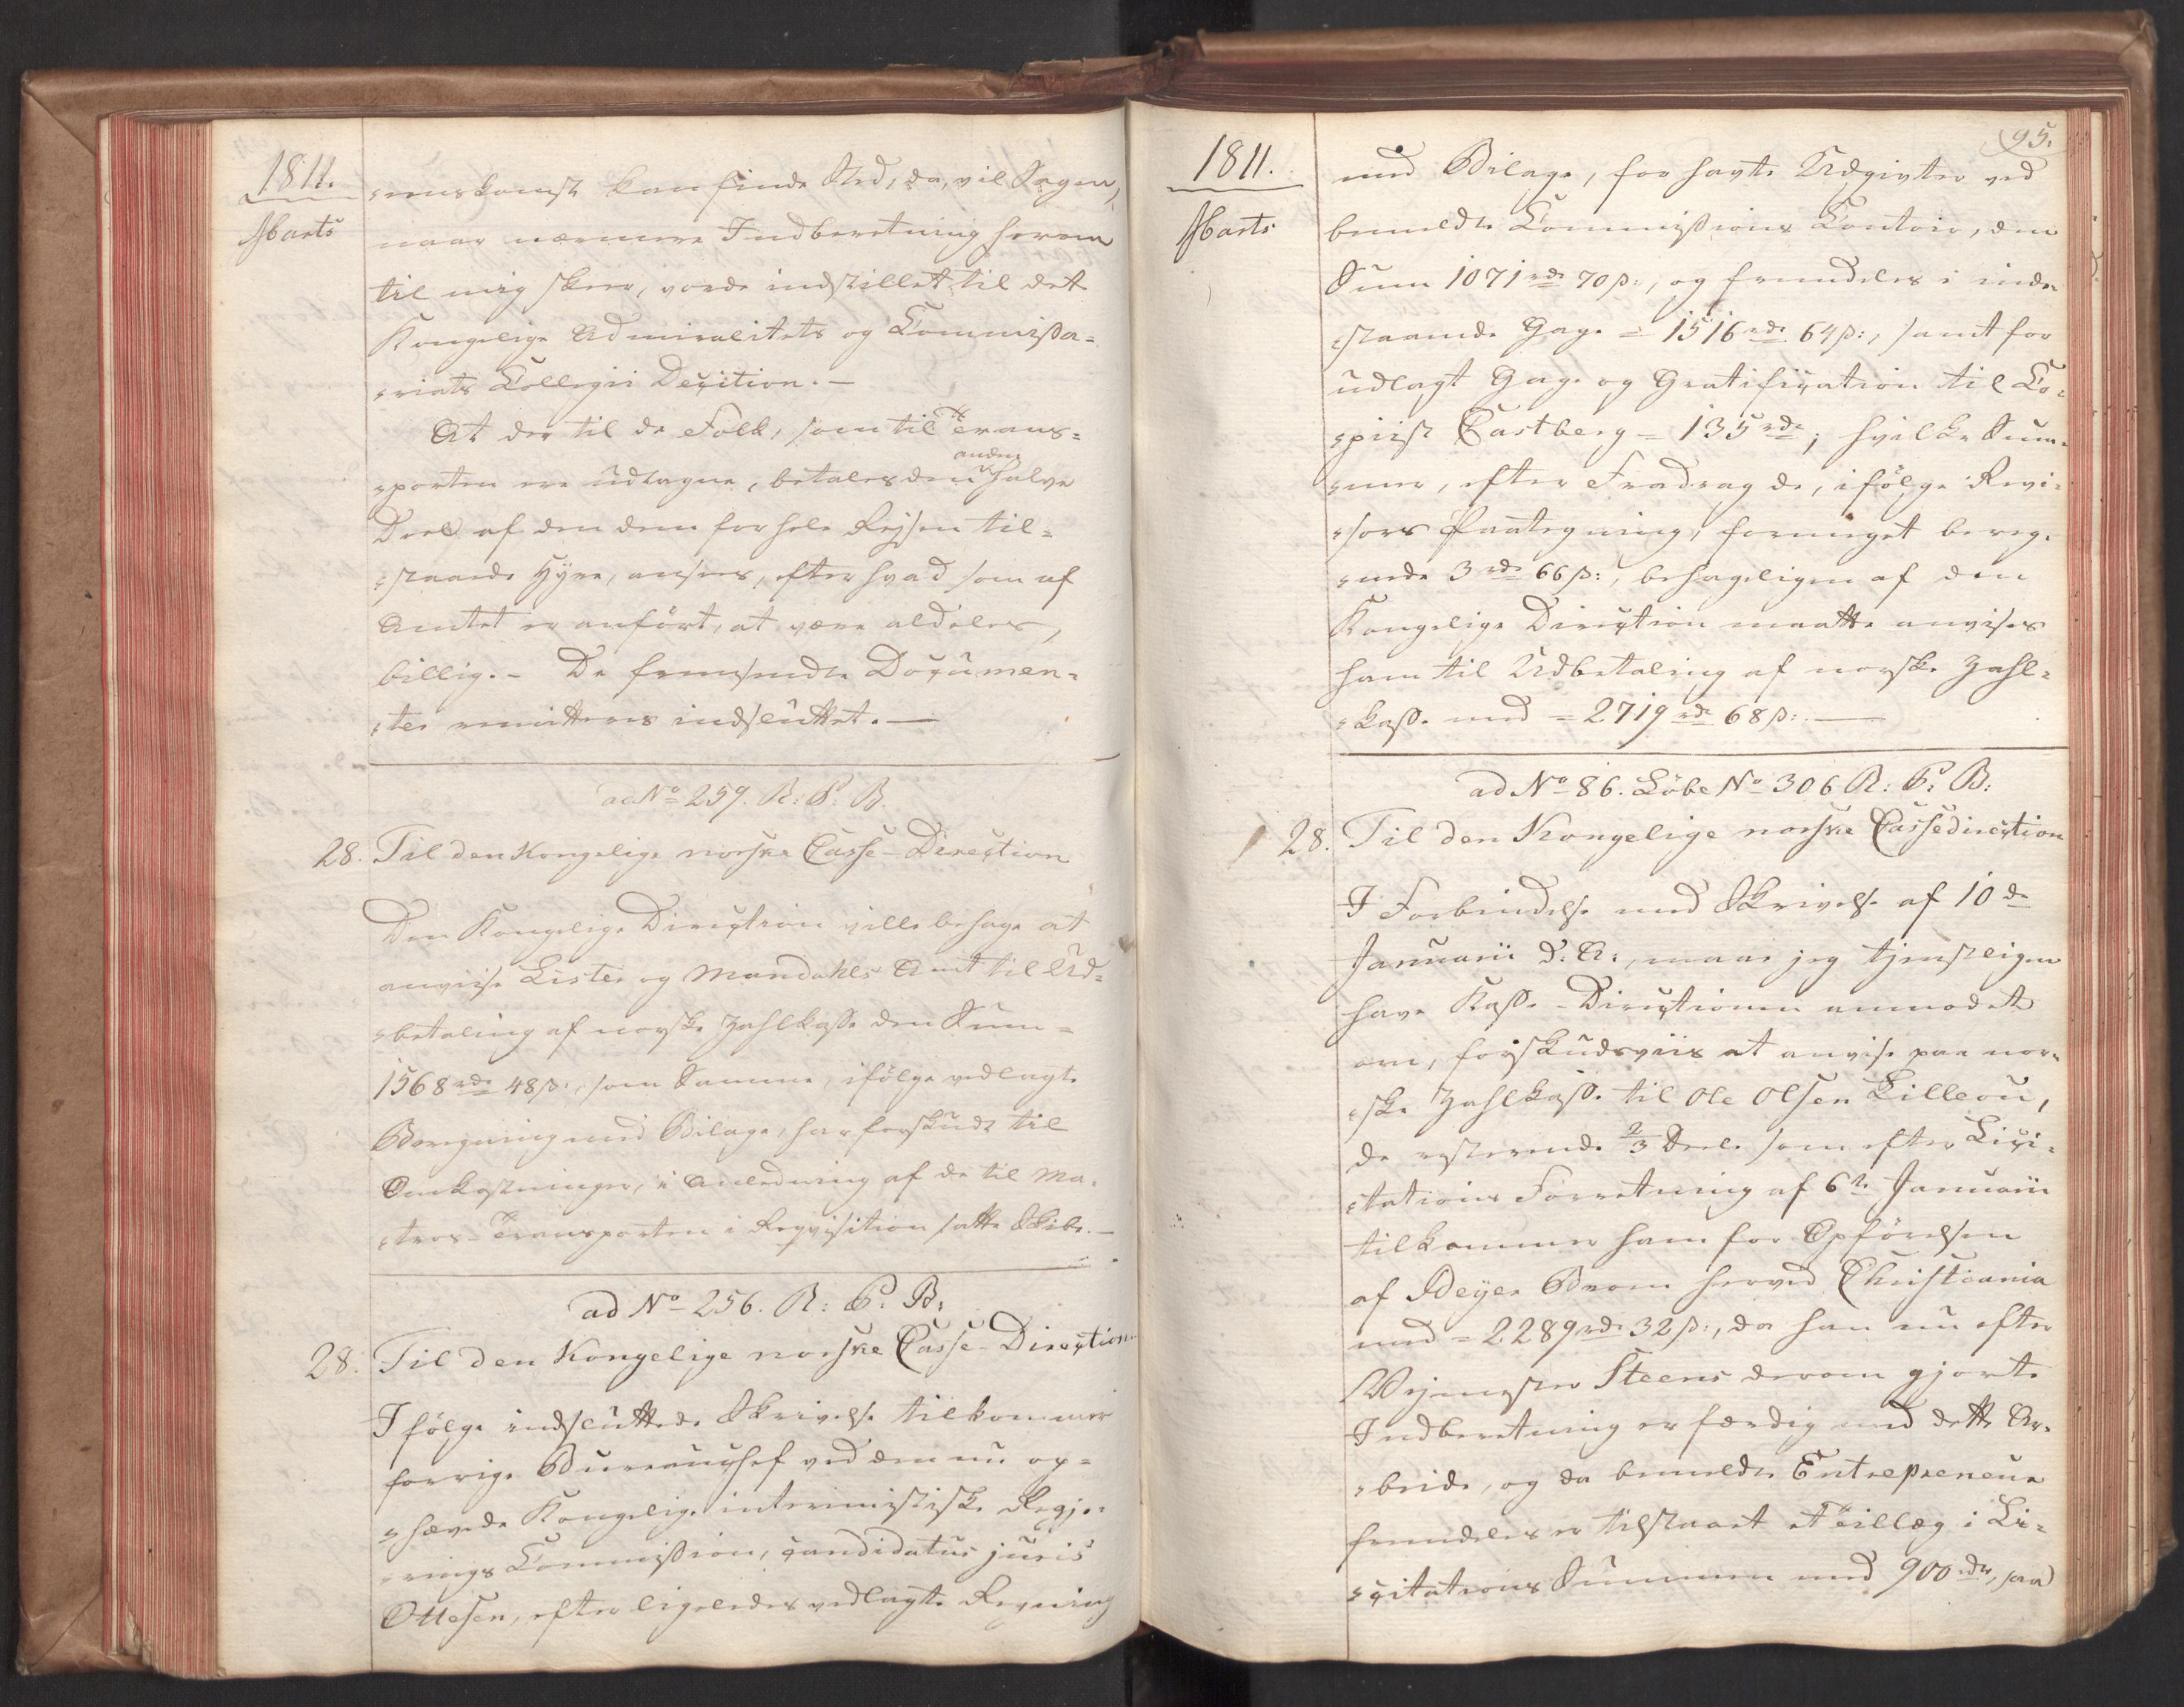 1811.
Marts
=enskomst kan finde Sted, da, vil Sagen,
naar nærmere Indberetning herom
til mig skeer, vorde indstillet til det
Kongelige Admiralitets og Commissa=
=riats Collegii Decition. —
At der til de Folk, som til Trans=
=porten ere udtagne, betales den anden halve
Deel af den dem for hele Rejsen til=
=staaede Hyre, ansees, efter hvad som af
Amtet er anført, at være aldeles
billig. - De fremsendte Documen=
=ter remitteres indsluttet. —
ad No 259. R: C: B.
28. Til den Kongelige norske Casse-Direction
Den Kongelige Direction ville behage at
anviise Lister og Mandahls Amt til Ud=
=betaling af norske Zahlkasse den Sum =
1568 rd 48 ß:, som Samme, ifølge vedlagte
Beregning med Bilage, har forskudt til
Omkostninger, i Anledning af de til Ma=
=tros-Transporten i Reqvisition satte Skibe. —
ad No 256. R: C: B:
28. Til den Kongelige norske Casse-Direction
Ifølge indsluttede Skrivelse tilkommer
forrige Bureauchef ved den nu op=
=hævede Kongelige interimistiske Regje=
=rings Commission, candidatus juris
Ottesen, efter ligeledes vedlagte Regning
95.
1811.
Marts
med Bilage, for havte Udgivter ved
bemeldte Commissions Contoir, den
Sum 1071 rd 70 ß:, og fremdeles i inde=
=staaende Gage = 1516 rd 64 ß:, samt for
udlagt Gage og Gratification til Co=
=piist Castberg = 135 rd; hvilke Sum=
=mer, efter Fradrag de, ifølge Revi=
=sors Paategning, formeget bereg=
=nede 3 rd 66 ß:, behageligen af den
Kongelige Direction maatte anvises
ham til Udbetaling af norske Zahl=
=kasse med = 2719 rd 68 ß: —
ad No 86. Löbe No 306 R: C: B:
28. Til den Kongelige norske Cassedirection
I Forbindelse med Skrivelse af 10de
Januarii d: A:, maae jeg tjenstligen
have Kasse-Directionen anmodet
om, forskudsviis at anvise paa nor=
=ske Zahlkasse til Ole Olsen Lilleou,
de resterende 2/3 Deele som efter Lici=
=tations Forretning af 6te Januarii
tilkommer ham for Opførelsen
af Beyer Broen herved Christiania
med = 2289 rd 32 ß:, da han nu efter
Vejmester Steens derom gjorte
Indberetning er færdig med dette Ar=
=beide, og da bemeldte Entrepreneur
fremdeles er tilstaaet et Tillæg i Li=
=citations Summen med 900 rd, saa